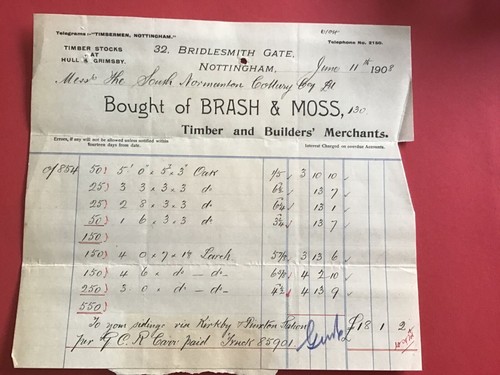 Telegrams—"TIMBERMEN, NOTTINGHAM."
Telephone No. 2150.
TIMBER STOCKS
AT
HULL & GRIMSBY.
32. BRIDLESMITH GATE,
NOTTINGHAM,
June 11th 1908
Messrs The South Normanton Colliery Coy Ltd
Bought of BRASH & MOSS,
130
Timber and Builders' Merchants.
Errors, if any will not be allowed unless notified within
fourteen days from date.
Interest Charged on overdue Accounts.
of 854 50) 5' 0" x 5" x 3" Oak 1/5 3 10 10
25) 3 3 x 3 x 3 do 13 7
25) 2 8 x 3 x 3 do 13 1
50) 1 6 x 3 x 3 do 13 7
150)
150) 4 0 x 7 x Larch 3 13 6
150) 4 6 x do — do 4 2 10
250) 3 0 x do — do 4 13 9
550)
To your sidings via Kirkby & Pinxton Station £18 1 2
per G C R Carr paid Truck 85901